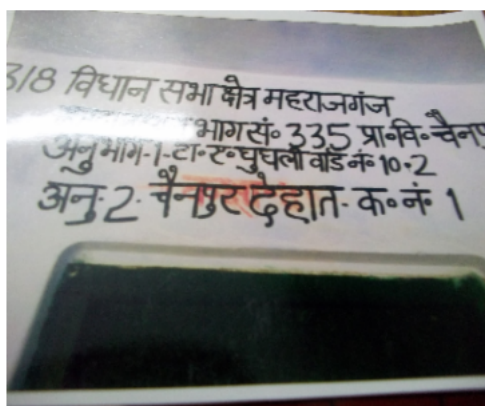 318 विधान सभा क्षेत्र महराजगंज
भाग सं॰ 335 प्रा॰वि॰ चैनपु
अनुभाग-1-टा॰ए॰घुघली वार्ड नं॰ 10॰2
अनु॰2॰ चैनपुर देहात॰ क॰ नं॰ 1